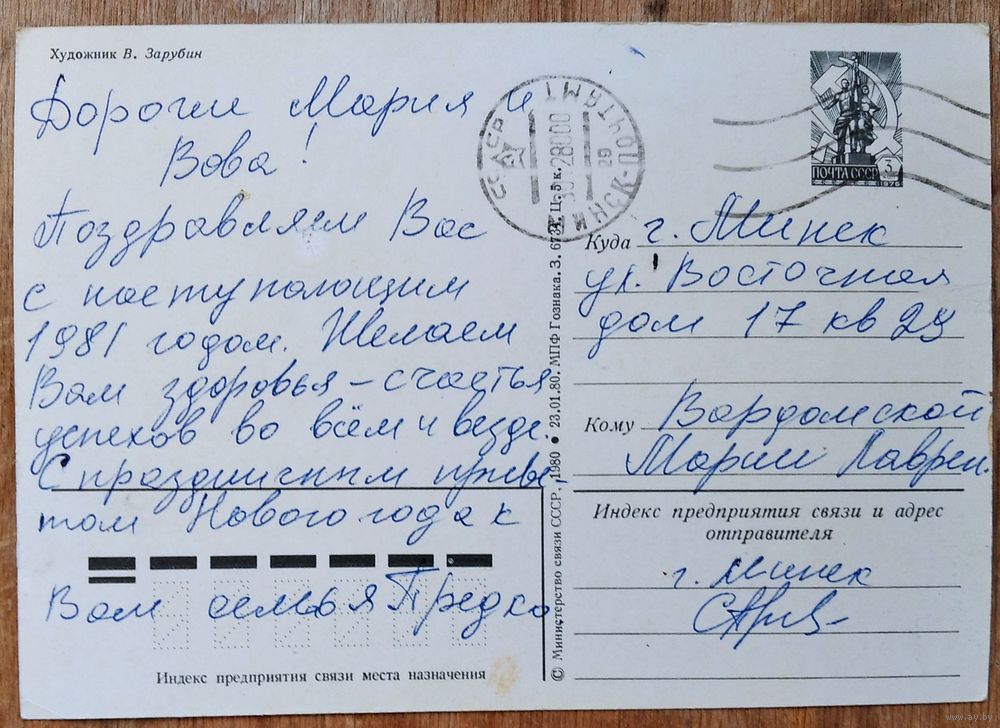 Художник В. Зарубин
Дорогие Мария и
Вова!
Поздравляем Вас
с наступающим
1981 годом. Желаем
Вам здоровья – счастья
успехов во всём и везде.
С праздничным приве
том Нового года к
Вам семья Предко
Индекс предприятия связи места назначения
© Министерство связи СССР, 1980 • 23.01.80. МПФ Гознака. З. 6734. Ц. 5 к.
СССР
МИНСК-ПОЧТАМТ
28000
29
ПОЧТА СССР 3
1976
Куда г. Минск
ул. Восточная
дом 17 кв 29
Кому Вардомской
Марии Лаврен.
Индекс предприятия связи и адрес
отправителя
г. Минск
www.ay.by